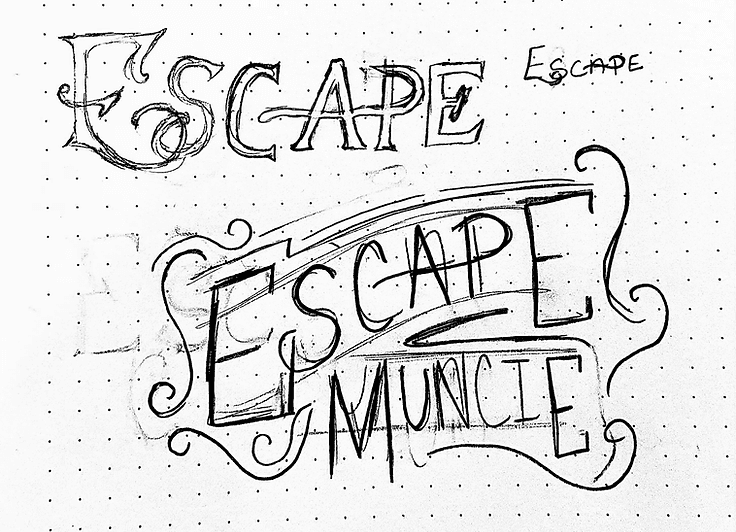 ESCAPE
ESCAPE
ESCAPE
MUNCIE